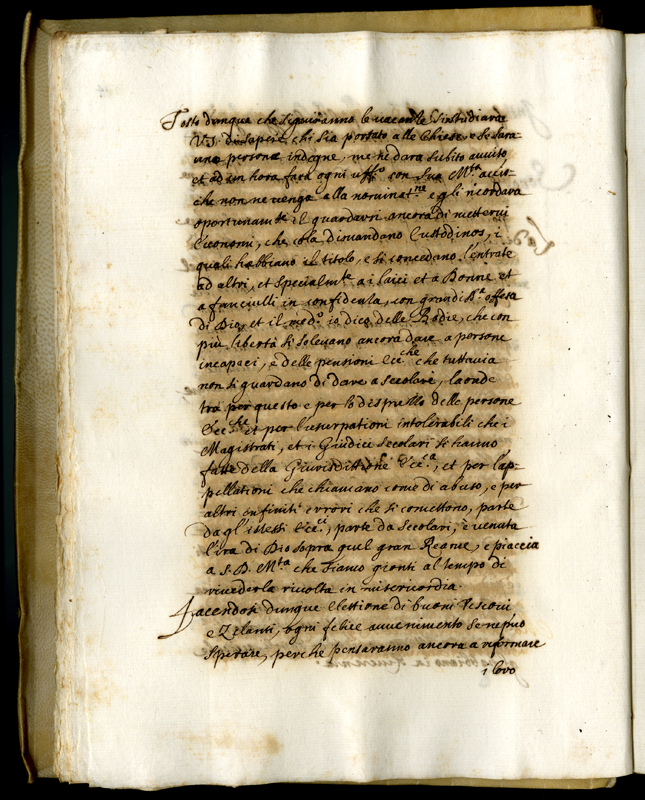 Tosto dunque che seguiranno le vacanze s'instudiarà
V.S. di sapere chi sia portato alle Chiese, e se sarà
una persona indegne, me ne darà subito avviso
et ad un hora farà ogni uff.º con Sua M.tà acciò
che non ne venga alla nominat.ne e gli ricordarà
oportunam.te il guardarsi ancora di mettervi
Economi, che colà dimandano Custodinos, i
quali habbiano il titolo, e si concedano l'entrate
ad altri, et specialm.te a i laici et a Donne et
a fanciulli in confidenza, con grandi.ma offesa
di Dio, et il med.º io dico delle Badie, che con
più libertà si solevano ancora dare a persone
incapaci, e delle pensioni Ecc.che che tuttavia
non si guardano di dare a secolari, laonde
tra per questo e per lo disprezzo delle persone
Ecc.che et per l'usurpationi intolerabili che i
Magistrati, et i Giudici secolari si hanno
fatte della Giurisdittione Ecc.ca, et per l'ap-
pellationi che chiamano come di abuso, e per
altri infiniti errori che si comettono, parte
dagl'istessi Ecc.ci, parte da secolari, è venuta
l'ira di Dio sopra quel gran Reame, e piaccia
a S. D. M.tà che siamo gionti al tempo di
vivederla rivolta in misericordia.
Facendosi dunque elettione di buoni Vescovi
e Zelanti, ogni felice avvenimento se ne può
sperare, perche pensaranno ancora a riformare
i loro